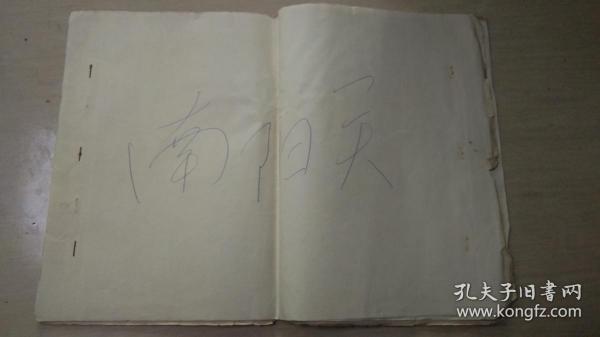 南阳关
孔夫子旧書网
www.kongfz.com